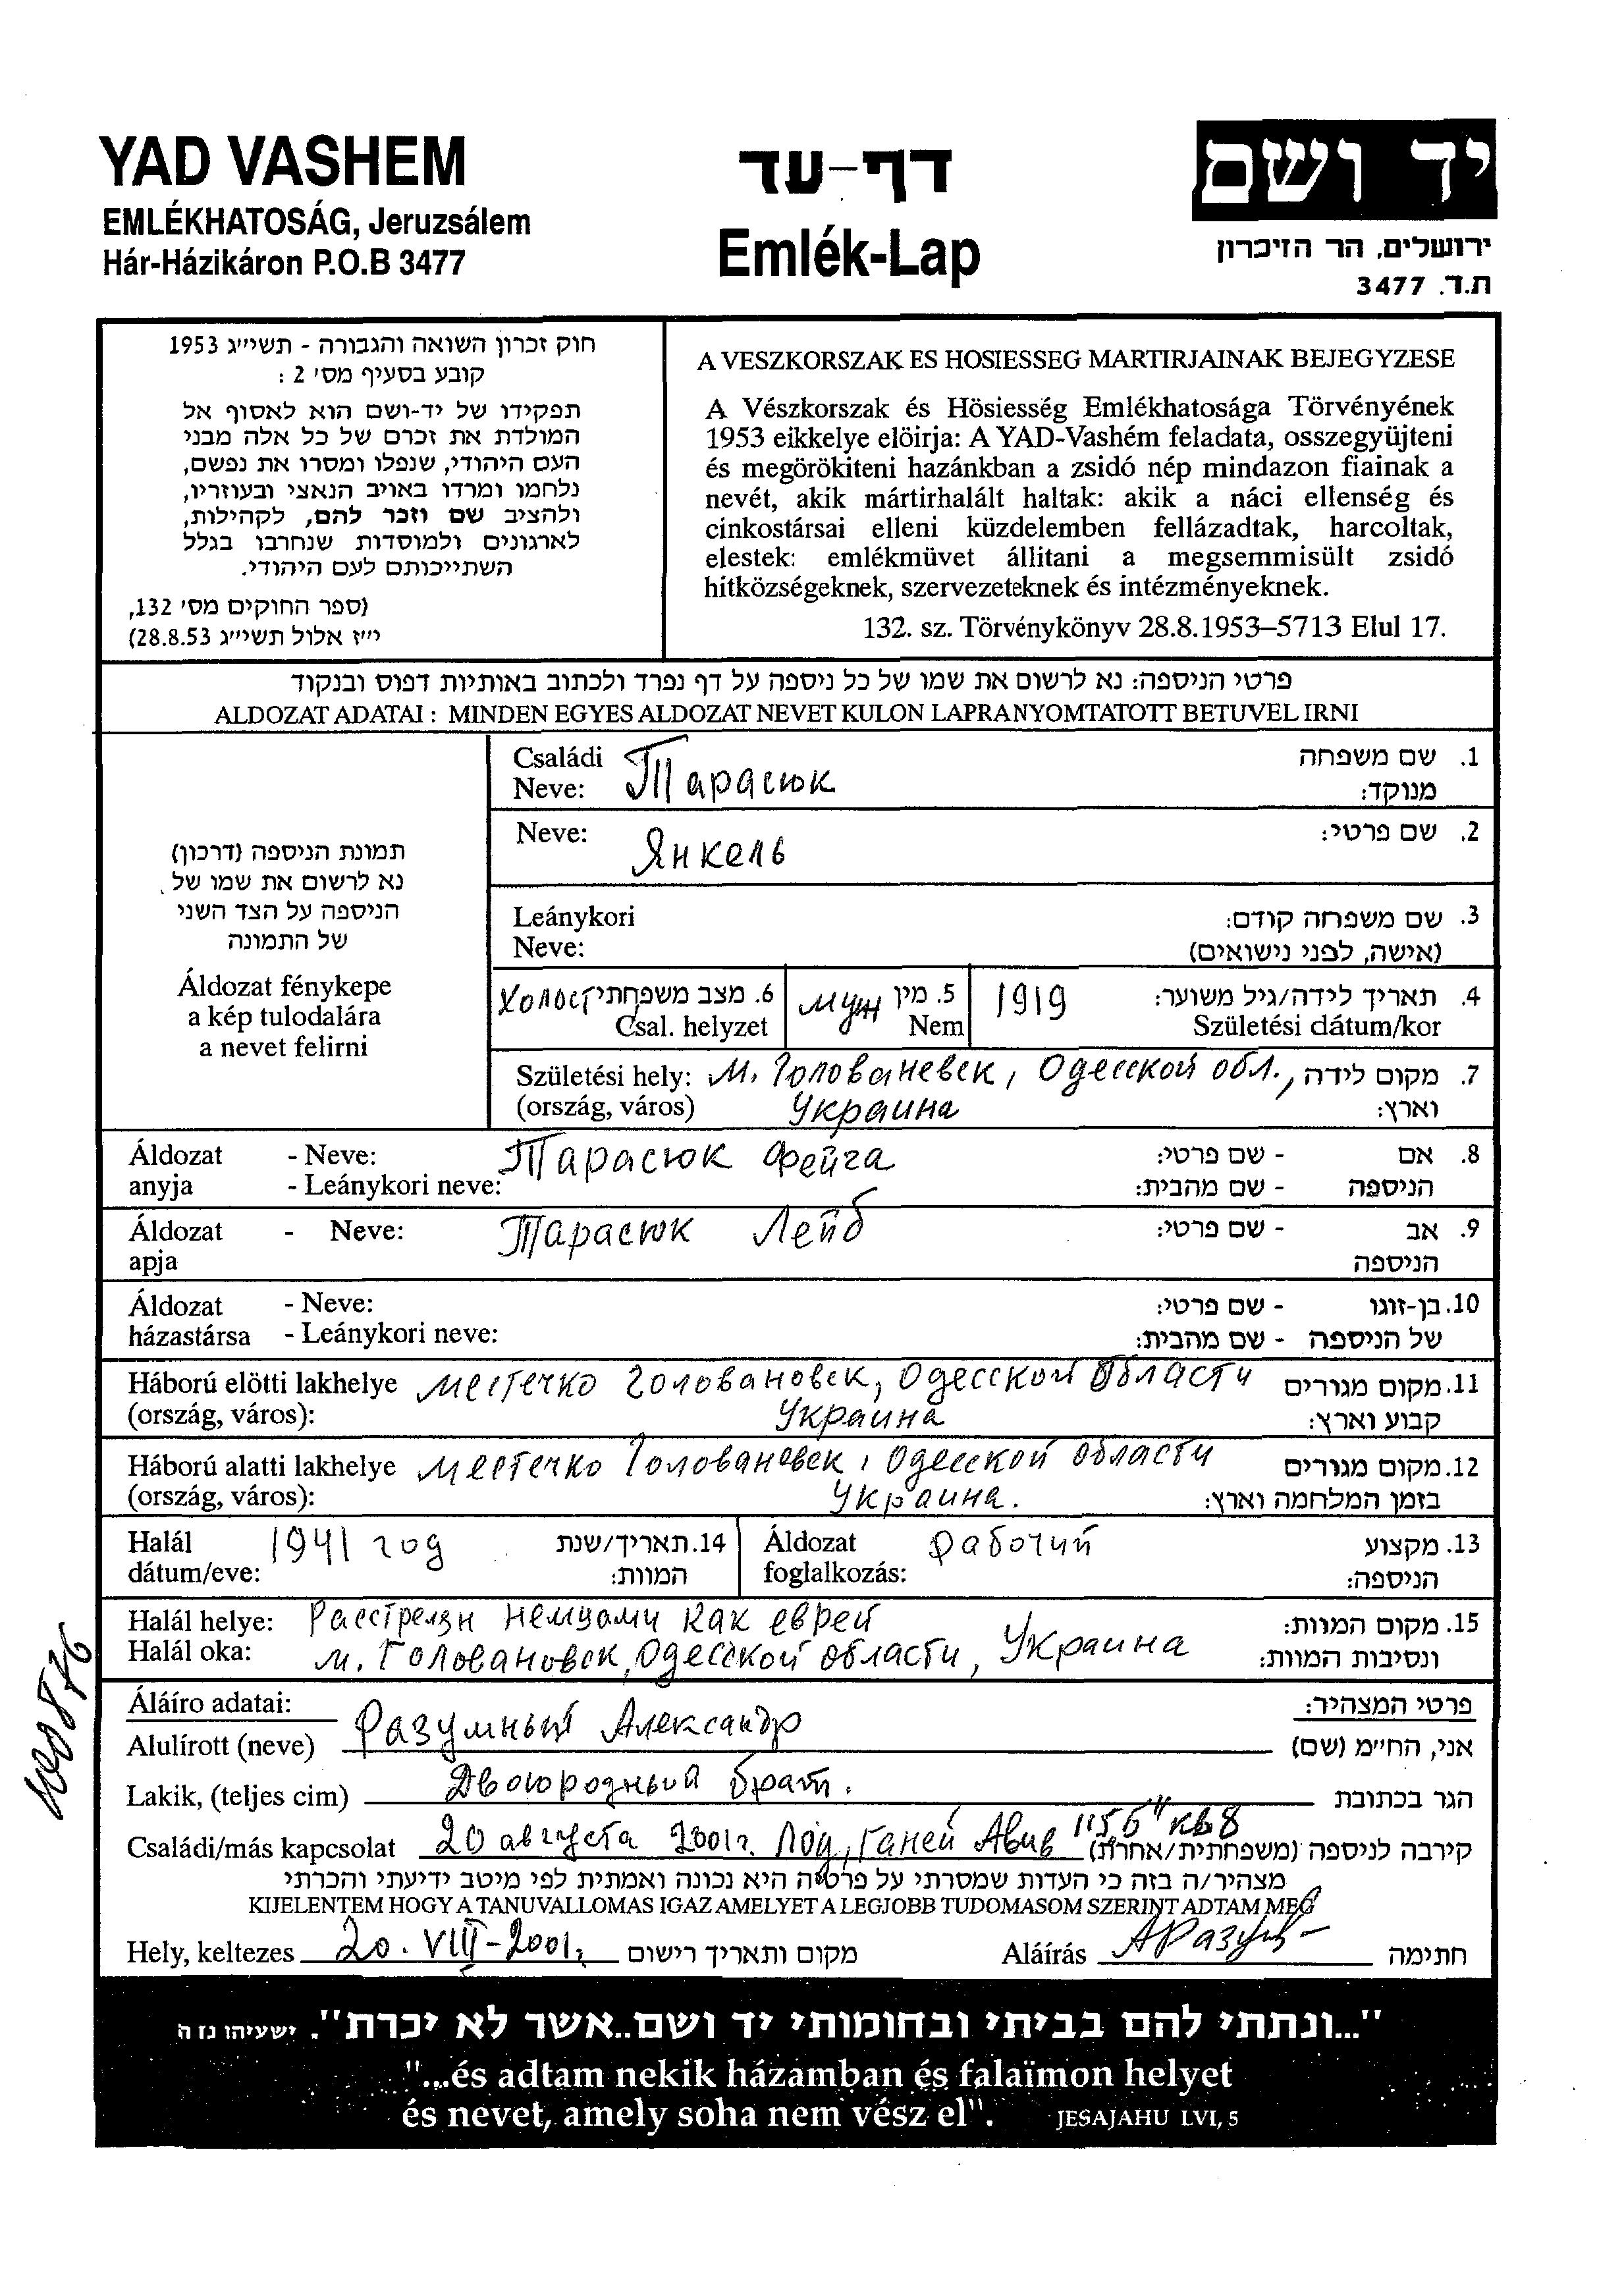 YAD VASHEM
EMLÉKHATOSÁG, Jeruzsálem
Hár-Házikáron P.O.B 3477
דף-עד
Emlék-Lap
יד ושם
ירושלים, הר הזיכרון
ת.ד. 3477
חוק זכרון השואה והגבורה - תשי״ג 1953
קובע בסעיף מס׳ 2 :
תפקידו של יד-ושם הוא לאסוף אל
המולדת את זכרם של כל אלה מבני
העם היהודי, שנפלו ומסרו את נפשם,
נלחמו ומרדו באויב הנאצי ובעוזריו,
ולהציב שם וזכר להם, לקהילות,
לארגונים ולמוסדות שנחרבו בגלל
השתייכותם לעם היהודי.
(ספר החוקים מס׳ 132,
י״ז אלול תשי״ג 28.8.53)
A VESZKORSZAK ES HOSIESSEG MARTIRJAINAK BEJEGYZESE
A Vészkorszak és Hösiesség Emlékhatosága Törvényének
1953 eikkelye elöirja: A YAD-Vashém feladata, osszegyüjteni
és megörökiteni hazánkban a zsidó nép mindazon fiainak a
nevét, akik mártirhalált haltak: akik a náci ellenség és
cinkostársai elleni küzdelemben fellázadtak, harcoltak,
elestek: emlékmüvet állitani a megsemmisült zsidó
hitközségeknek, szervezeteknek és intézményeknek.
132. sz. Törvénykönyv 28.8.1953–5713 Elul 17.
פרטי הניספה: נא לרשום את שמו של כל ניספה על דף נפרד ולכתוב באותיות דפוס ובנקוד
ALDOZAT ADATAI : MINDEN EGYES ALDOZAT NEVET KULON LAPRA NYOMTATOTT BETUVEL IRNI
תמונת הניספה (דרכון)
נא לרשום את שמו של
הניספה על הצד השני
של התמונה
Áldozat fénykepe
a kép tulodalára
a nevet felirni
Családi Тарасюк 1. שם משפחה
Neve: מנוקד:
Neve: Янкель 2. שם פרטי:
Leánykori 3. שם משפחה קודם:
Neve: (אישה, לפני נישואים)
Холост 6. מצב משפחתי муж 5. מין 1919 4. תאריך לידה/גיל משוער:
Csal. helyzet Nem Születési dátum/kor
Születési hely: м. Голованевск, Одесской обл., 7. מקום לידה
(ország, város) Украина וארץ:
Áldozat - Neve: Тарасюк Фейга 8. אם - שם פרטי:
anyja - Leánykori neve: הניספה - שם מהבית:
Áldozat - Neve: Тарасюк Лейб 9. אב - שם פרטי:
apja הניספה
Áldozat - Neve: 10. בן-זוגו - שם פרטי:
házastársa - Leánykori neve: של הניספה - שם מהבית:
Háború elötti lakhelye местечко Головановск, Одесской области 11. מקום מגורים
(ország, város): Украина קבוע וארץ:
Háború alatti lakhelye местечко Головановск, Одесской области 12. מקום מגורים
(ország, város): Украина. בזמן המלחמה וארץ:
Halál 1941 год 14. תאריך/שנת Áldozat рабочий 13. מקצוע
dátum/eve: המוות: foglalkozás: הניספה:
Halál helye: Расстрелян немцами как еврей 15. מקום המוות:
Halál oka: м. Головановск, Одесской области, Украина ונסיבות המוות:
Aláíro adatai: פרטי המצהיר:
Alulírott (neve) Разумный Александр אני, החי״מ (שם)
Lakik, (teljes cim) Двоюродный брат. הגר בכתובת
Családi/más kapcsolat 20 августа 2001г. Лод, Ганей Авив "5Б" кв 8 קירבה לניספה (משפחתית/אחרת)
מצהיר/ה בזה כי העדות שמסרתי על פרטיה היא נכונה ואמתית לפי מיטב ידיעתי והכרתי
KIJELENTEM HOGY A TANUVALLOMAS IGAZ AMELYET A LEGJOBB TUDOMASOM SZERINT ADTAM MEG
Hely, keltezes 20. VIII-2001г. מקום ותאריך רישום Aláírás АРазум חתימה
"...ונתתי להם בביתי ובחומותי יד ושם..אשר לא יכרת". ישעיהו נז ה
"...és adtam nekik házamban és falaïmon helyet
és nevet, amely soha nem vész el". JESAJAHU LVI, 5